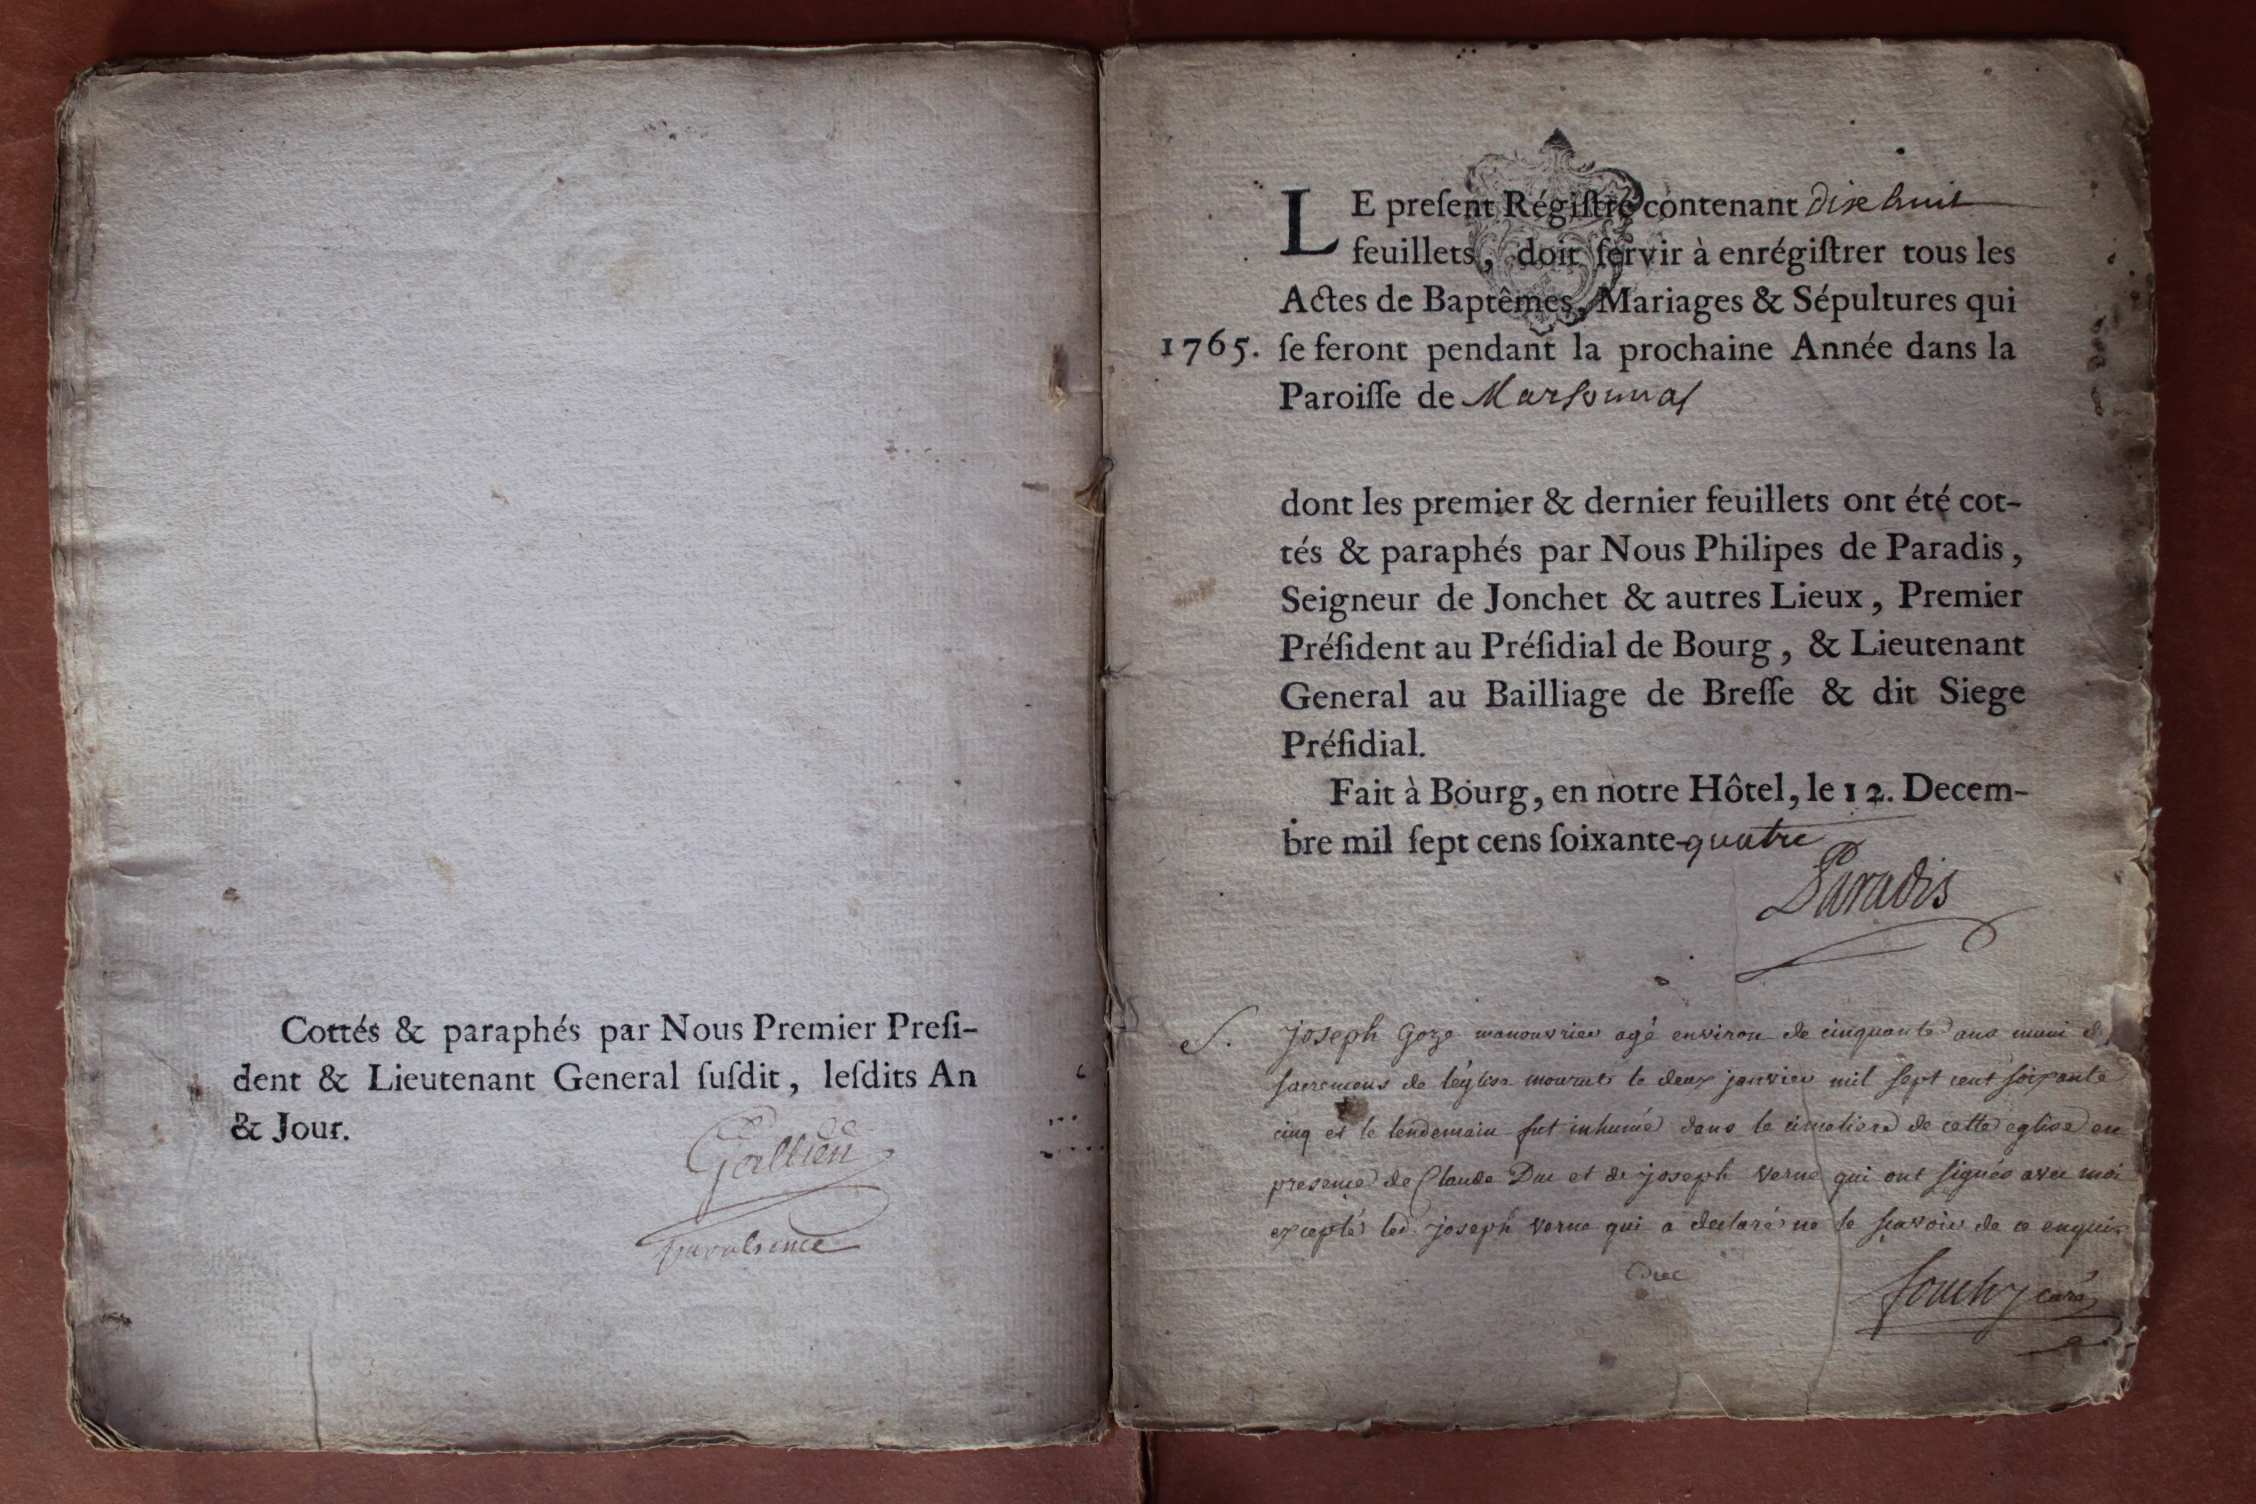 Cottés & paraphés par Nous Premier Preſi-
dent & Lieutenant General ſuſdit, leſdits An
& Jour.
Gallien
LE preſent Régiſtre contenant dixhuit
feuillets, doit ſervir à enrégiſtrer tous les
Actes de Baptêmes, Mariages & Sépultures qui
1765. ſe feront pendant la prochaine Année dans la
Paroiſſe de Marsonnas
dont les premier & dernier feuillets ont été cot-
tés & paraphés par Nous Philipes de Paradis,
Seigneur de Jonchet & autres Lieux, Premier
Préſident au Préſidial de Bourg, & Lieutenant
General au Bailliage de Breſſe & dit Siege
Préſidial.
Fait à Bourg, en notre Hôtel, le 12. Decem-
bre mil ſept cens ſoixante-quatre
Paradis
S. joseph Goze manouvrier agé environ de cinquante ans muni de
sacremens de l'église mourut le deux janvier mil sept cent soixante
cinq et le lendemain fut inhumé dans le cimetiere de cette eglise en
presence de Claude Duc et de joseph verne qui ont signés avec moi
excepté led. joseph verne qui a declaré ne le sçavoir de ce enquis
Duc
curé